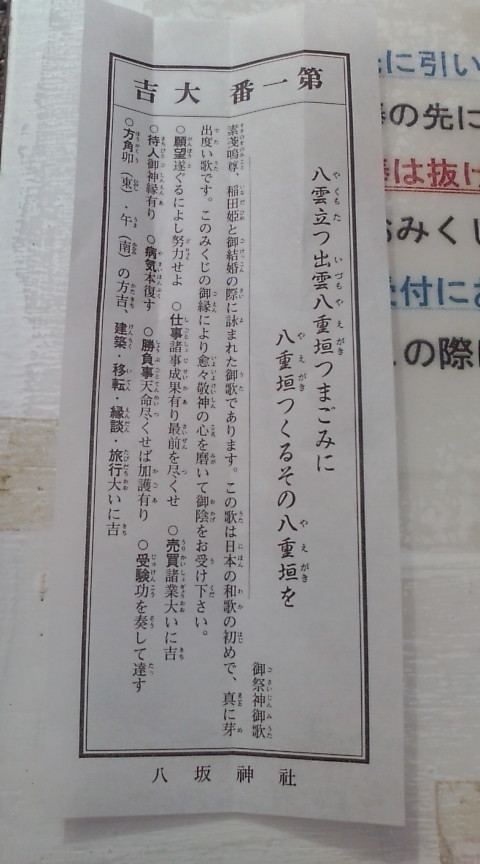 第一番 大吉
八雲立つ出雲八重垣つまごみに
八重垣つくるその八重垣を
御祭神御歌
素戔嗚尊、稲田姫と御結婚の際に詠まれた御歌であります。この歌は日本の和歌の初めで、真に芽
出度い歌です。このみくじの御縁により愈々敬神の心を磨いて御陰をお受け下さい。
○願望遂ぐるによし努力せよ ○仕事諸事成果有り最前を尽くせ ○売買諸業大いに吉
○待人御神縁有り ○病気本復す ○勝負事天命尽くせば加護有り ○受験功を奏して達す
○方角卯（東）・午（南）の方吉、建築・移転・縁談・旅行大いに吉
八坂神社
に引い
の先に
は抜け
おみくじ
受付にお
の際に